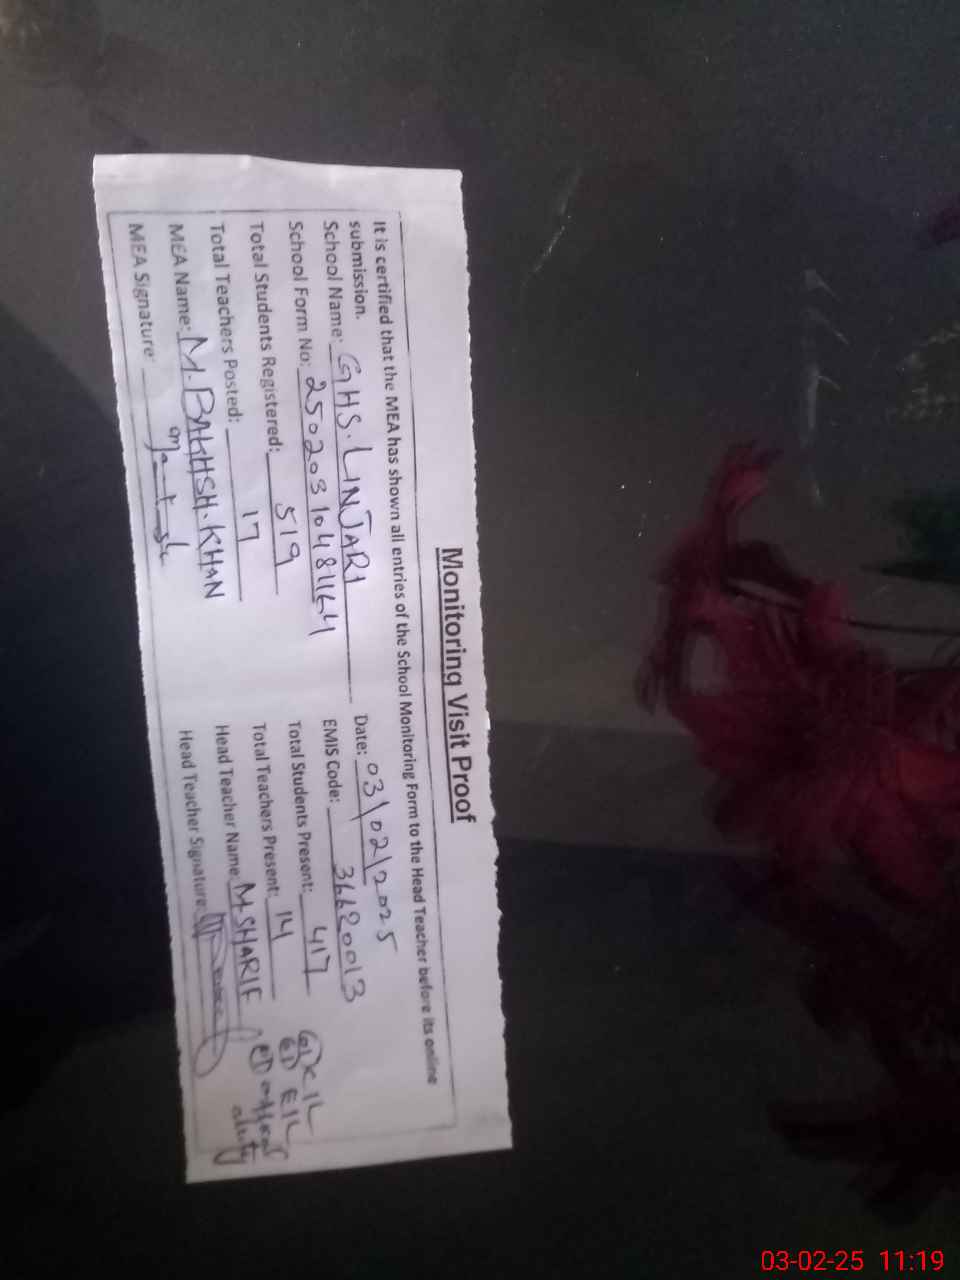 Monitoring Visit Proof
It is certified that the MEA has shown all entries of the School Monitoring Form to the Head Teacher before its online
submission.
School Name: GHS. LINJARI Date: 03\02\2025
School Form No: 25020310481164 EMIS Code: 36620013
Total Students Registered: 519 Total Students Present: 417
Total Teachers Posted: 17 Total Teachers Present: 14
MEA Name: M. BAKHSH. KHAN Head Teacher Name: M. SHARIF
MEA Signature: Head Teacher Signature:
official
duty
03-02-25 11:19